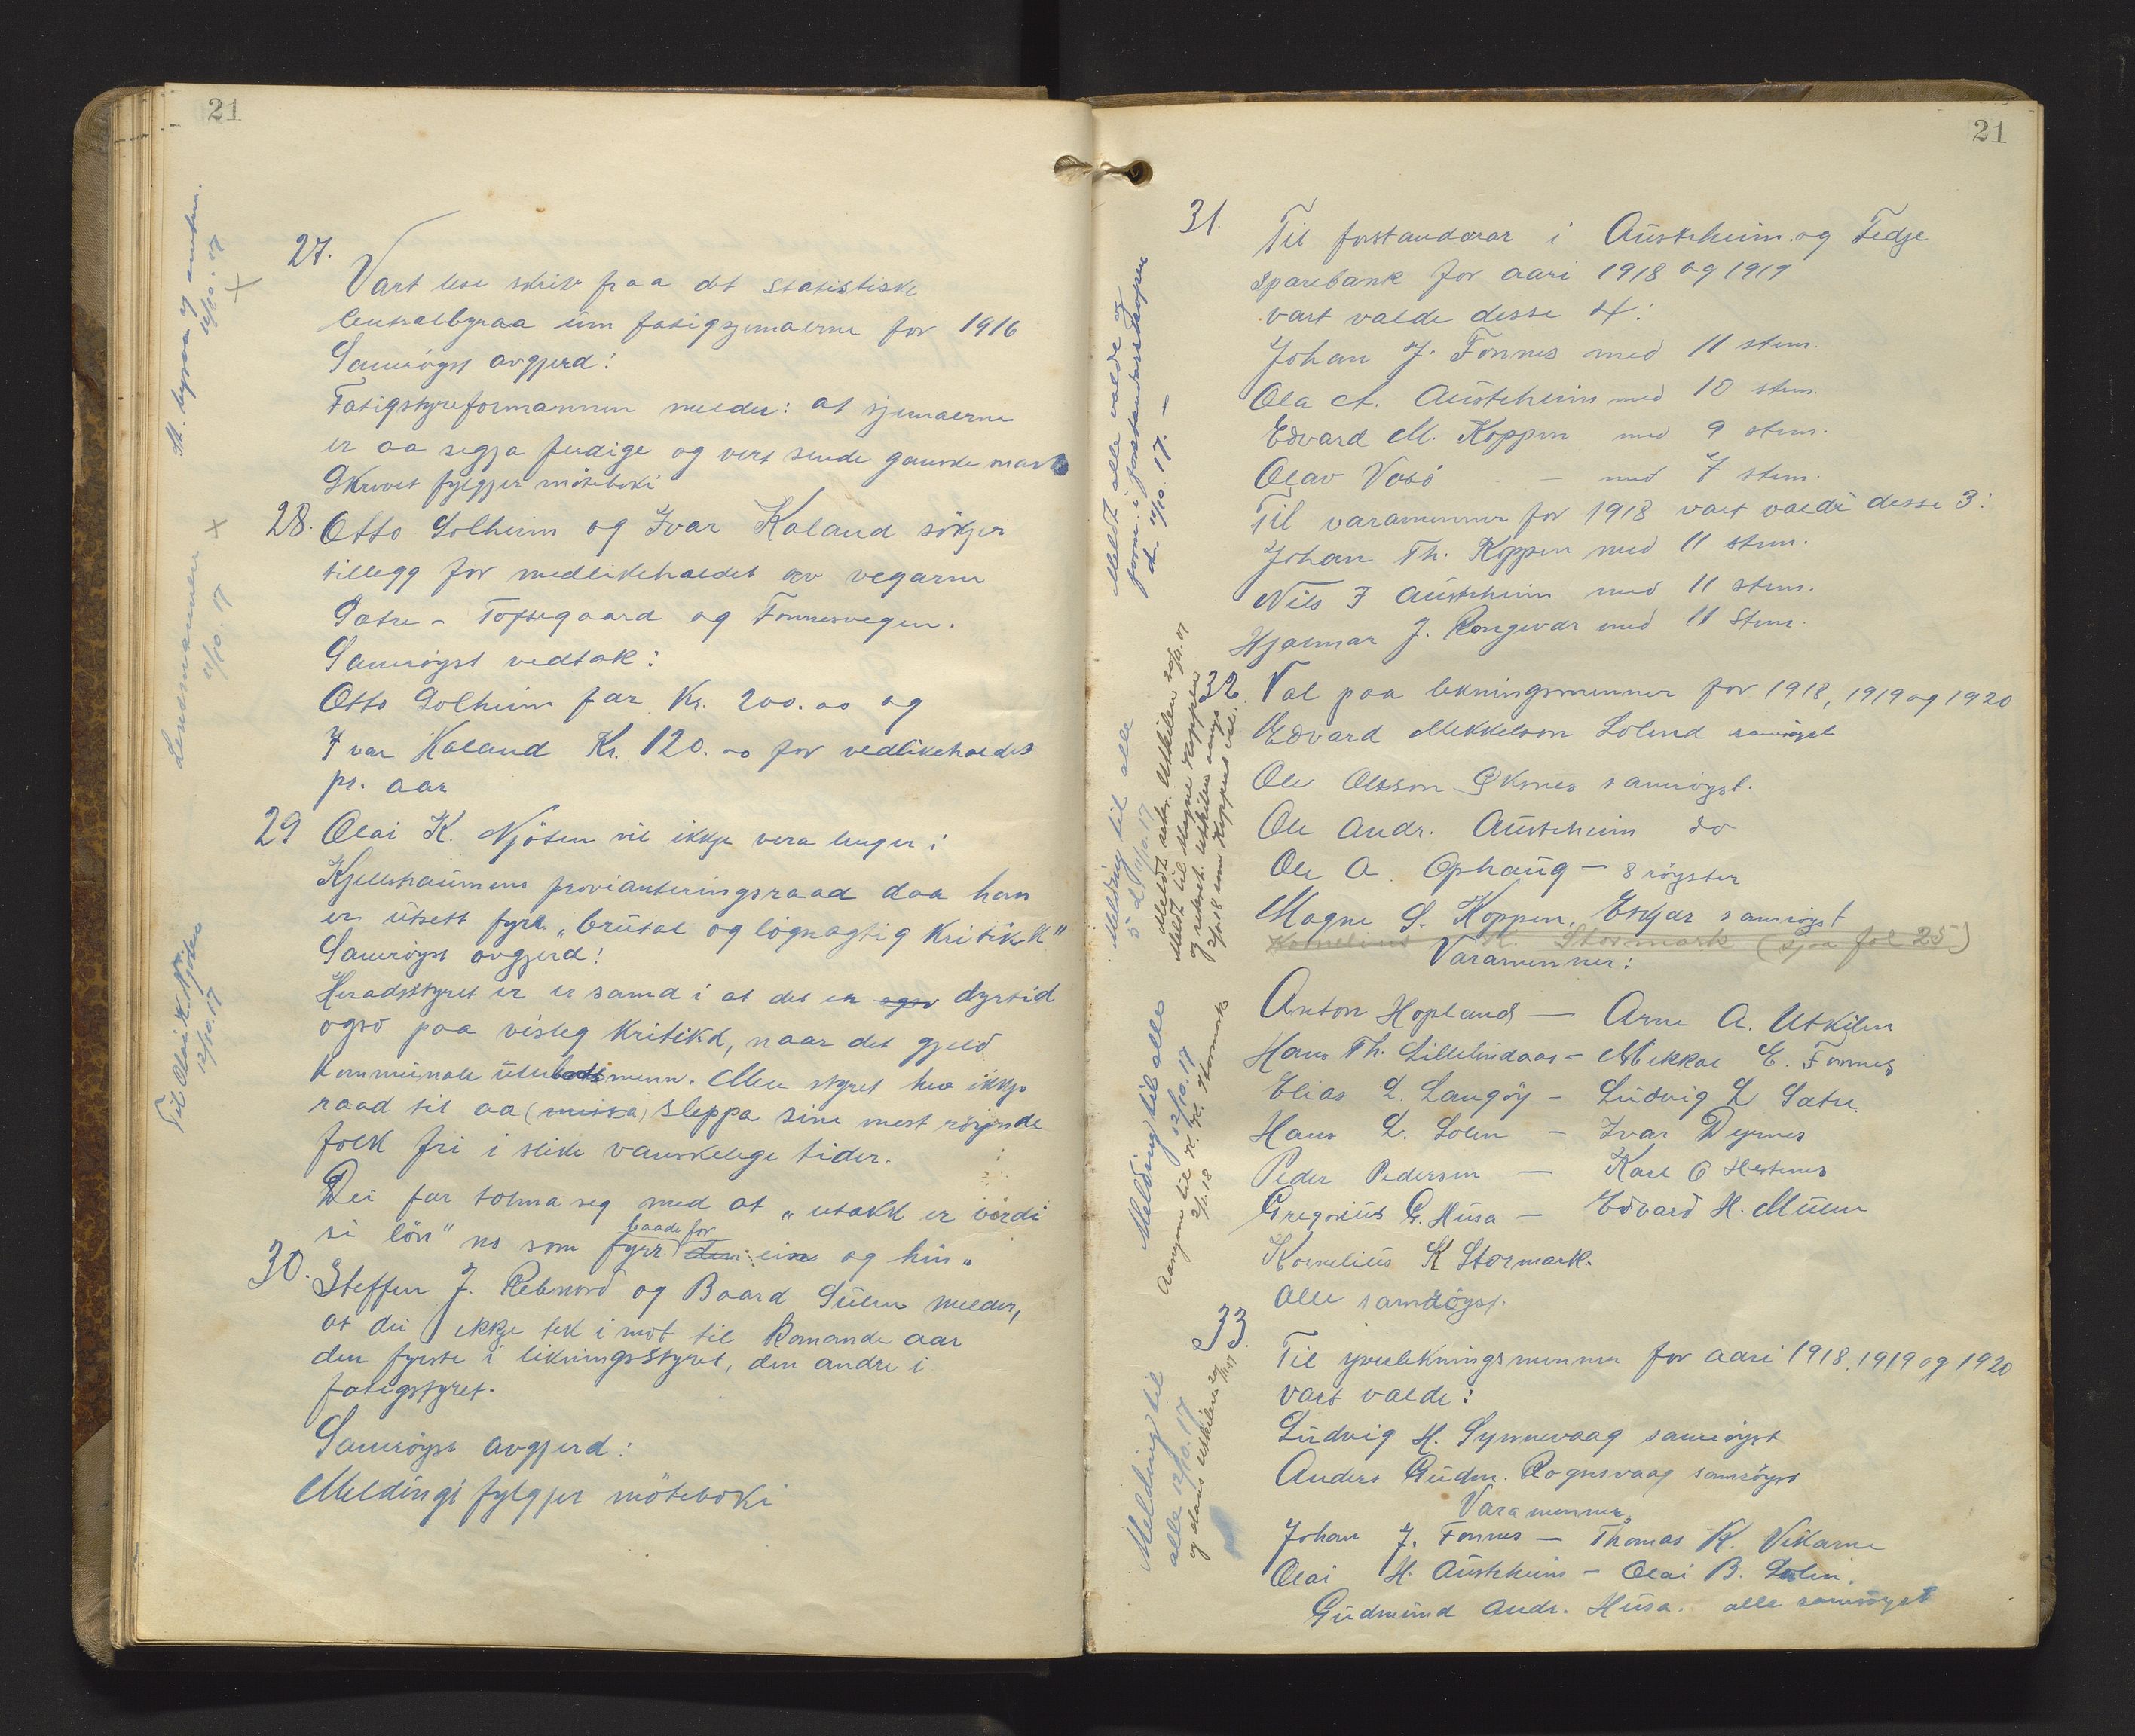 21
27.
Vart lese skriv fraa det statistiske
Centralbyraa um fatigsjemaerne for 1916
Samrøgst avgjerd:
Fatigstyreformannen melder: at sjemaerne
er aa segja ferdige og vert sende ganske snart
Skrivet fylgjer møteboki
28. Otto Solheim og Ivar Kaland søkjer
tillegg for vedlikehaldet av vegarne
Sætre - Toftegaard og Fonnesvegen.
Samrøgst vedtak:
Otto Solheim far Kr. 200.00 og
Ivar Kaland Kr. 120.00 for vedlikehaldet
pr. aar
29 Olai K. Njøten vil ikkje vera lenger i
Kjelstraumens provianteringsraad daa han
er utsett fyre „brutal og løgnagtig Kritikk"
Samrøgst avgjerd:
Heradsstyret er er samd i at det er ogso dyrtid
ogso paa visleg kritikk, naar det gjeld
kommunale umbodsmenn. Men styret hev ikkje
raad til aa (missa) sleppa sine mest røynde
folk fri i slike vanskelege tider.
Dei far tolma seg med at „utakk er verdi
si løn" no som fyrr baade for den: eine og hin.
30. Steffen J. Rebnord og Baard Sulen melder,
at dei ikkje tek i mot til komande aar
den fyrste i likningsstyret, den andre i
fatigstyret.
Samrøgst avgjerd:
Meldingi fylgjer møteboki
St. byraa
11/10. 17
Lensmannen
11/10. 17
Til Olai K. Njøten
12/10. 17
21
31. Til forstandarar i Austrheim og Fedje
sparebank for aari 1918 og 1919
vart valde desse 4:
Johan J. Fonnes med 11 stem.
Ola A. Austrheim med 10 stem.
Edvard M. Koppen med 9 stem.
Olav Vabø - med 7 stem.
Til varamenner for 1918 vart valde desse 3:
Johan Th. Koppen med 11 stem.
Nils J Austrheim med 11 stem.
Hjalmar J. Rongevær med 11 Stem.
32. Val paa likningsmenner for 1918, 1919 og 1920
Edvard Mekkelson Solend samrøgst
Ole Olsson Øksnes samrøgst.
Ole Andr. Austrheim do
Ole A. Ophaug - 8 røyster
Magne S. Koppen, samrøgst
Kornelius K. Stormark (sjaa fol 25)
Varamenner:
Anton Hopland - Arne A. Utkilen
Hans Th. Lillelindaas - Mikkal E. Fonnes
Elias L. Langøy - Ludvig L Sætre
Hans L. Solen - Ivar Dyrnes
Peder Pedersen - Karl O Hestenes
Gregorius G. Husa - Edvard H. Mulen
Kornelius K Stormark.
Alle samrøgst.
33. Til yverlikningsmenner for aari 1918, 1919 og 1920
vart valde:
Ludvig H. Synnevaag samrøgst
Anders Gudm. Rognsvaag samrøgst
Varamenner
Johan J. Fonnes - Thomas K. Vikarne
Olai H. Austrheim - Olai B. Sulen.
Gudmund Andr. Husa. alle samrøgst
Meldt alle valde og
form. i forstandarskapen
d. 11/10. 17. -
Melding til alle
d. 11/10. 17
Meldt til Magne Koppen
Melding til alle
12/10. 17
Stormark
2/1. 18
Melding til
alle 12/10. 17